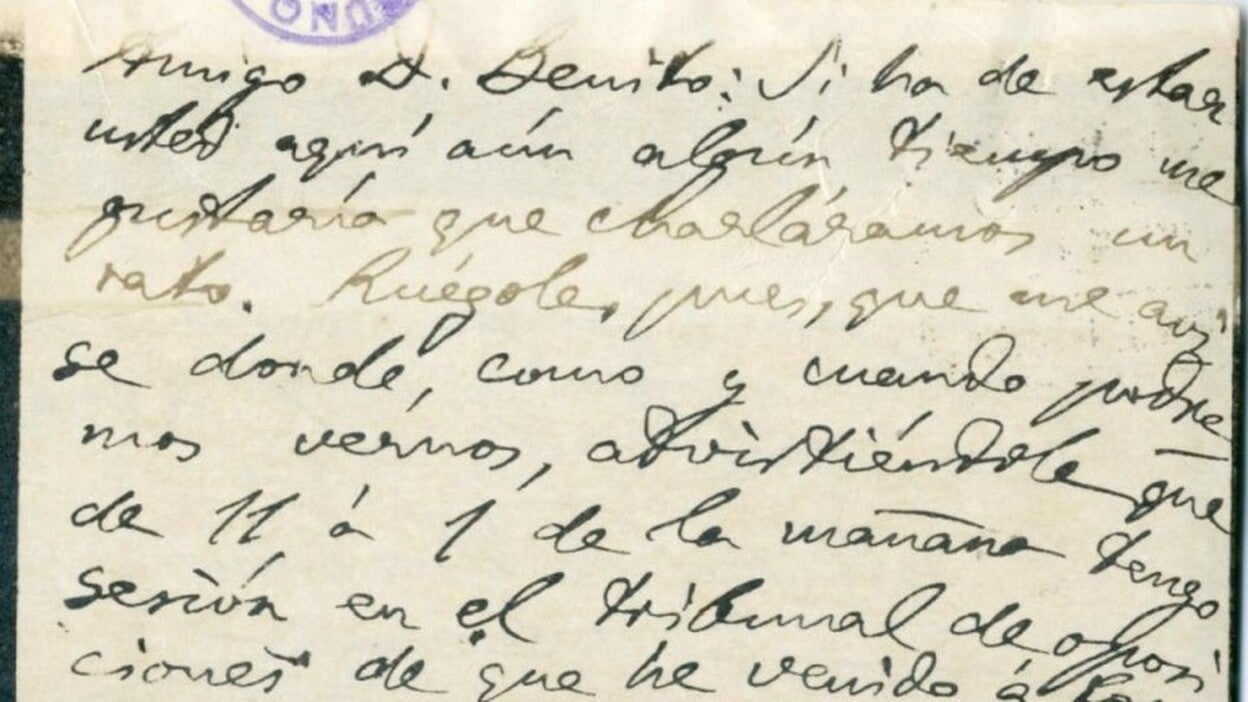 UNO
Amigo D. Benito: Si ha de estar
usted aquí aún algún tiempo me
gustaría que charláramos un
rato. Ruégole, pues, que me avi
se donde, como y cuando podre
mos vernos, advirtiéndole que
de 11 á 1 de la mañana tengo
sesión en el tribunal de oposi
ciones de que he venido á